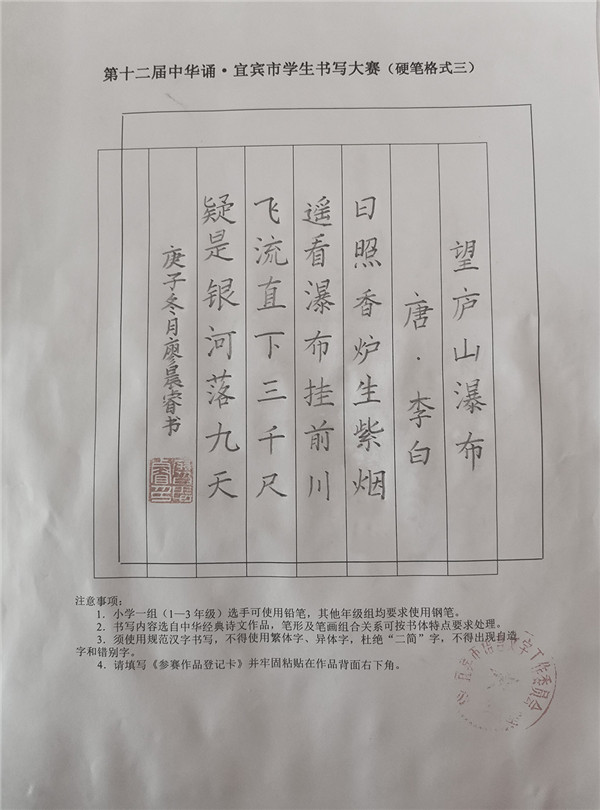 第十二届中华诵·宜宾市学生书写大赛（硬笔格式三）
望庐山瀑布
唐·李白
日照香炉生紫烟
遥看瀑布挂前川
飞流直下三千尺
疑是银河落九天
庚子冬月廖晨睿书
注意事项：
1．小学一组（1—3年级）选手可使用铅笔，其他年级组均要求使用钢笔。
2．书写内容选自中华经典诗文作品，笔形及笔画组合关系可按书体特点要求处理。
3．须使用规范汉字书写，不得使用繁体字、异体字，杜绝“二简”字，不得出现自造
字和错别字。
4．请填写《参赛作品登记卡》并牢固粘贴在作品背面右下角。